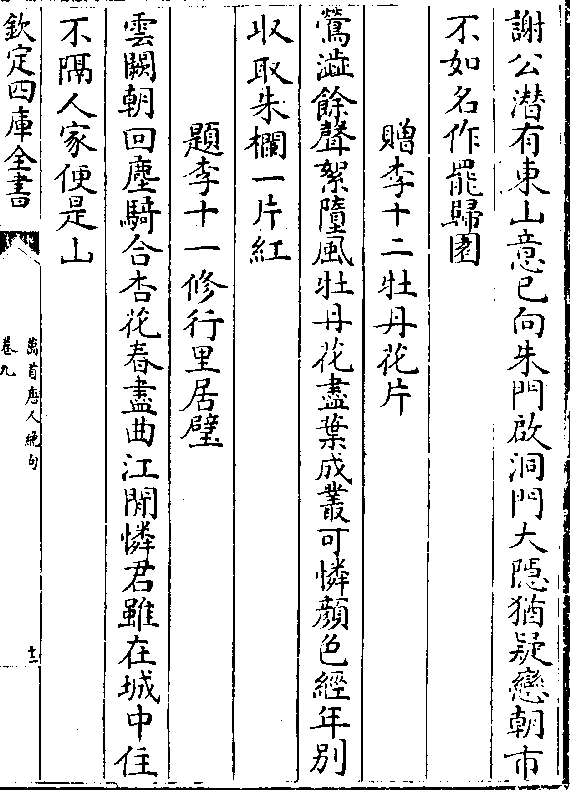 謝公潛有東山意已向朱門啟洞門大隱猶疑戀朝市
不如名作罷歸園
贈李十二牡丹花片
鶯澁餘聲絮墮風牡丹花盡葉成叢可憐顔色經年別
収取朱欄一片紅
題李十一修行里居壁
雲闕朝回塵騎合杏花春盡曲江閒憐君雖在城中住
不隔人家便是山
欽定四庫全書
萬首唐人絶句
卷九
十二